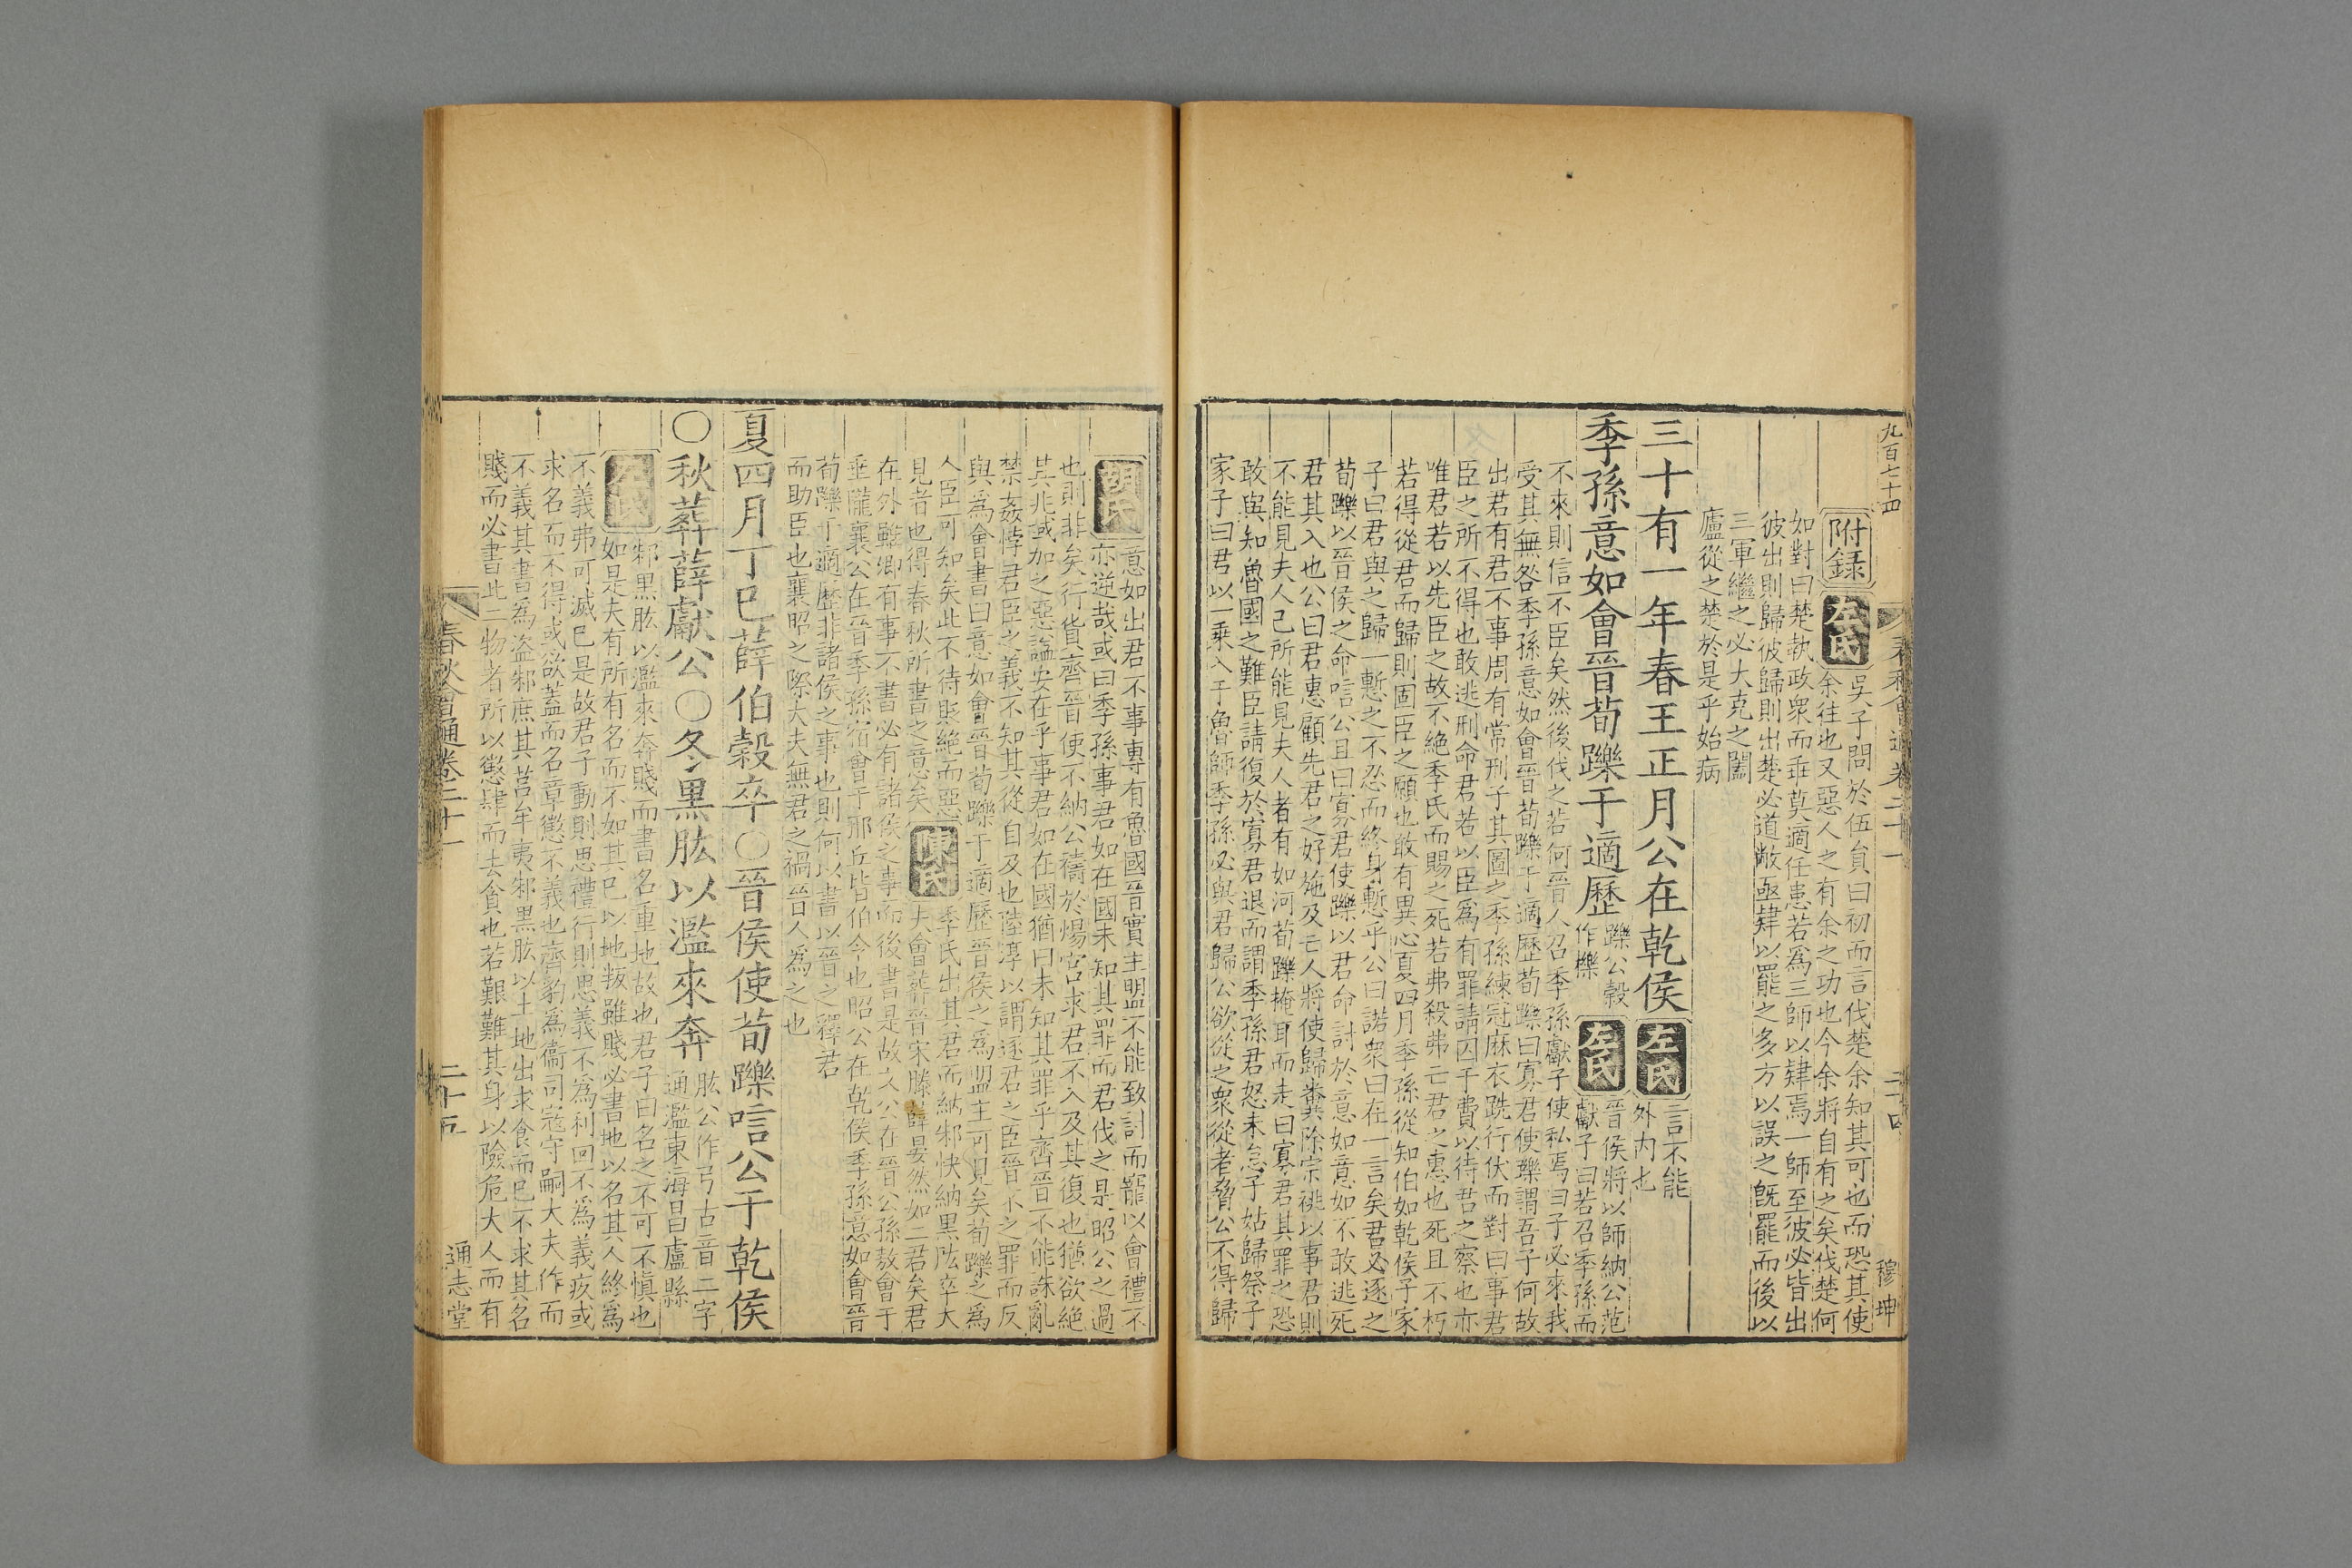 九百七十四
春秋會通卷二十一
二十四
穆坤
附録 左氏 吳子問於伍貟曰初而言伐楚余知其可也而恐其使
余往也又惡人之有余之功也今余將自有之矣伐楚何
如對曰楚執政衆而乖莫適任患若爲三師以肄焉一師至彼必皆出
彼出則歸彼歸則出楚必道敝亟肄以罷之多方以誤之旣罷而後以
三軍繼之必大克之闔
廬從之楚於是乎始病
三十有一年春王正月公在乾侯 左氏 言不能
外内也
季孫意如會晉荀躒于適歷 躒公穀
作櫟
左氏 晉侯將以師納公范
獻子曰若召季孫而
不來則信不臣矣然後伐之若何晉人召季孫獻子使私焉曰子必來我
受其無咎季孫意如會晉荀躒于適歷荀躒曰寡君使躒謂吾子何故
出君有君不事周有常刑子其圖之季孫練冠麻衣跣行伏而對曰事君
臣之所不得也敢逃刑命君若以臣爲有罪請囚于費以待君之察也亦
唯君若以先臣之故不絶季氏而賜之死若弗殺弗亡君之惠也死且不朽
若得從君而歸則固臣之願也敢有異心夏四月季孫從知伯如乾侯子家
子曰君與之歸一慙之不忍而終身慙乎公曰諾衆曰在一言矣君必逐之
荀躒以晉侯之命唁公且曰寡君使躒以君命討於意如意如不敢逃死
君其入也公曰君惠顧先君之好施及亡人將使歸糞除宗祧以事君則
不能見夫人已所能見夫人者有如河荀躒掩耳而走曰寡君其罪之恐
敢與知魯國之難臣請復於寡君退而謂季孫君怒未怠子姑歸祭子
家子曰君以一乘入于魯師季孫必與君歸公欲從之衆從者脅公不得歸
胡氏 意如出君不事專有魯國晉實主盟不能致討而寵以會禮不
亦逆哉或曰季孫事君如在國未知其罪而君伐之是昭公之過
也則非矣行貨齊晉使不納公禱於煬宫求君不入及其復也猶欲絶
其兆域加之惡諡安在乎事君如在國猶曰未知其罪乎齊晉不能誅亂
禁姦悖君臣之義不知其從自及也陸淳以謂逐君之臣晉不之罪而反
與爲會書曰意如會晉荀躒于適歷晉侯之爲盟主可見矣荀躒之爲
人臣可知矣此不待貶絶而惡
見者也得春秋所書之意矣
陳氏 季氏出其君而納邾快納黑肱卒大
夫會葬晉宋滕薛晏然如二君矣君
在外雖卿有事不書必有諸侯之事而後書是故文公在晉公孫敖會于
垂隴襄公在晉季孫宿會于邢丘皆伯令也昭公在乾侯季孫意如會晉
荀躒于適歷非諸侯之事也則何以書以晉之釋君
而助臣也襄昭之際大夫無君之禍晉人爲之也
夏四月丁巳薛伯穀卒○晉侯使荀躒唁公于乾侯
○秋葬薛獻公○冬黑肱以濫來奔 肱公作弓古音二字
通濫東海昌盧縣
左氏 邾黑肱以濫來奔賤而書名重地故也君子曰名之不可不愼也
如是夫有所有名而不如其已以地叛雖賤必書地以名其人終爲
不義弗可滅已是故君子動則思禮行則思義不爲利回不爲義疚或
求名而不得或欲蓋而名章懲不義也齊豹爲衞司寇守嗣大夫作而
不義其書爲盗邾庶其莒牟夷邾黑肱以土地出求食而已不求其名
賤而必書此二物者所以懲肆而去貪也若艱難其身以險危大人而有
春秋會通卷二十一
二十五
通志堂